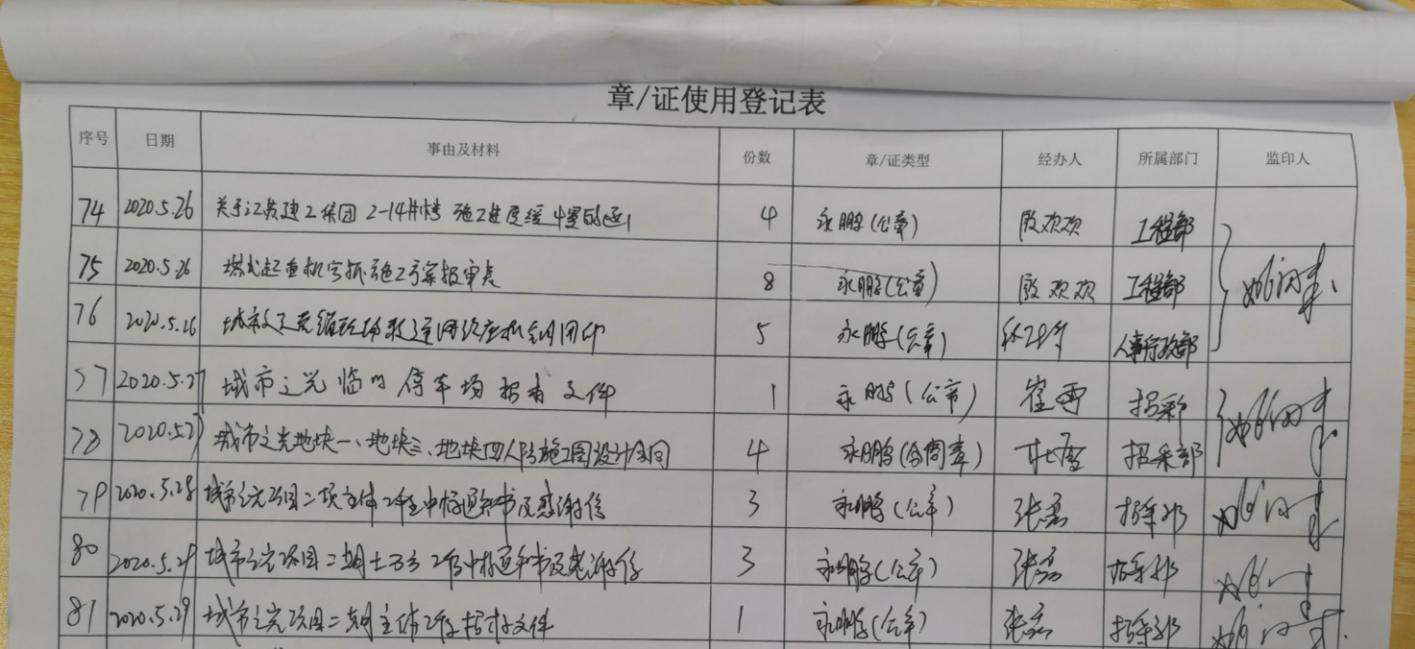 章/证使用登记表
序号 日期 事由及材料 份数 章/证类型 经办人 所属部门 监印人
74 2020.5.26 关于江苏建工集团 2-14# 施工进度缓 的函 4 永鹏(公章) 殷欢欢 工程部
75 2020.5.26 塔式起重机 施工方案报审表 8 永鹏(公章) 殷欢欢 工程部
76 2020.5.26 城市之光 5 永鹏(公章) 人事行政部
57 2020.5.27 城市之光临时停车场招标文件 1 永鹏(公章) 崔雪 招采
78 2020.5.27 城市之光地块一、地块三、地块四人防施工图设计合同 4 永鹏(合同章) 杜雪 招采部
79 2020.5.28 城市之光项目二期主体工程中标通知书及感谢信 3 永鹏(公章) 张磊 招采部
80 2020.5.29 城市之光项目二期土石方工程中标通知书及感谢信 3 永鹏(公章) 张磊 招采部
81 2020.5.29 城市之光项目二期主体工程招标文件 1 永鹏(公章) 张磊 招采部